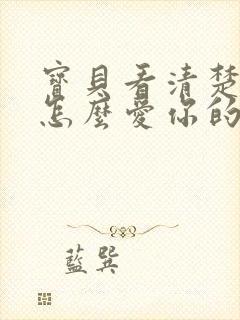 寶貝看清楚
怎麼愛你的
藍巽